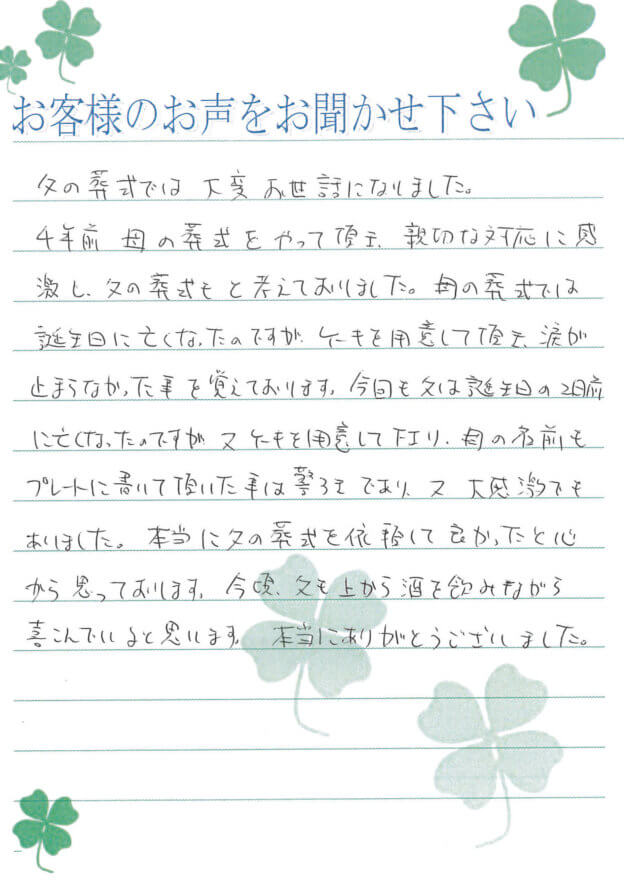 お客様のお声をお聞かせ下さい
父の葬式では 大変 お世話になりました。
4年前 母の葬式をやって頂き、親切な対応に感
激し、父の葬式もと考えておりました。母の葬式では
誕生日に亡くなったのですが、ケーキを用意して頂き、涙が
止まらなかった事を覚えております。今回も父は誕生日の2日前
に亡くなったのですが 又 ケーキを用意して下さり、母の名前も
プレートに書いて頂いた事は驚きであり、又 大感激でも
ありました。本当に父の葬式を依頼して良かったと心
から思っております。今頃、父も上から酒を飲みながら
喜こんでいると思います。 本当にありがとうございました。